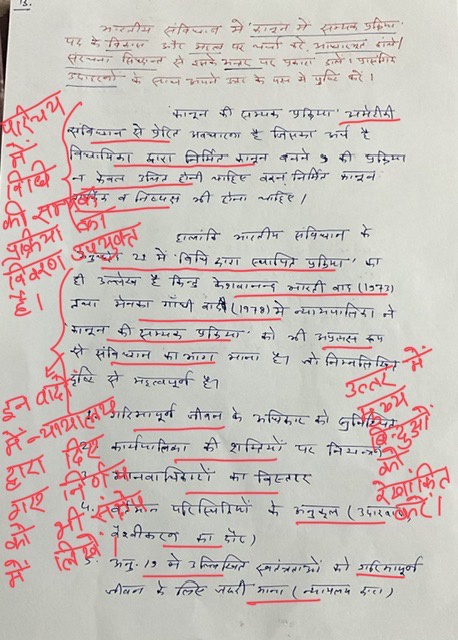 13.
भारतीय संविधान में 'कानून में सम्यक प्रक्रिया'
पद के विकास और महत्व पर चर्चा करें, आधारभूत ढांचे/
संरचना सिद्धान्त से इसके अन्तर पर प्रकाश डालें। प्रासंगिक
उदाहरणों के साथ अपने उत्तर के पक्ष में पुष्टि करें।
'कानून की सम्यक प्रक्रिया' अमेरीकी
संविधान से प्रेरित अवधारणा है जिसका अर्थ है
विधायिका द्वारा निर्मित कानून बनाने की प्रक्रिया
न केवल उचित होनी चाहिए वरन् निर्मित कानून
व निष्पक्ष भी होना चाहिए।
हालांकि भारतीय संविधान के
अनुच्छेद 21 में 'विधि द्वारा स्थापित प्रक्रिया' का
ही उल्लेख है किन्तु केशवानन्द भारती वाद (1973)
तथा मेनका गाँधी वाद (1978) में न्यायपालिका ने
'कानून की सम्यक प्रक्रिया' को भी अप्रत्यक्ष रूप
से संविधान का भाग माना है। जो निम्नलिखित
दृष्टि से महत्वपूर्ण है।
1. गरिमापूर्ण जीवन के अधिकार को सुनिश्चित
2. कार्यपालिका की शक्तियों पर नियन्त्रण
3. मानवाधिकारों का विस्तार
4. वर्तमान परिस्थितियों के अनुकूल (उदारवाद,
वैश्वीकरण का दौर)
5. अनु. 19 में उल्लिखित स्वतंत्रताओं को गरिमापूर्ण
जीवन के लिए जरुरी माना (न्यायालय द्वारा)
परिचय
में
विधि
की सम्यक
प्रक्रिया का
विवरण उपयुक्त
है।
इन वादों
में न्यायालय
द्वारा दिए
गए निर्णय
को भी संक्षेप
में लिखें।
उत्तर में
मुख्य
बिन्दुओं
को
रेखांकित
करें।